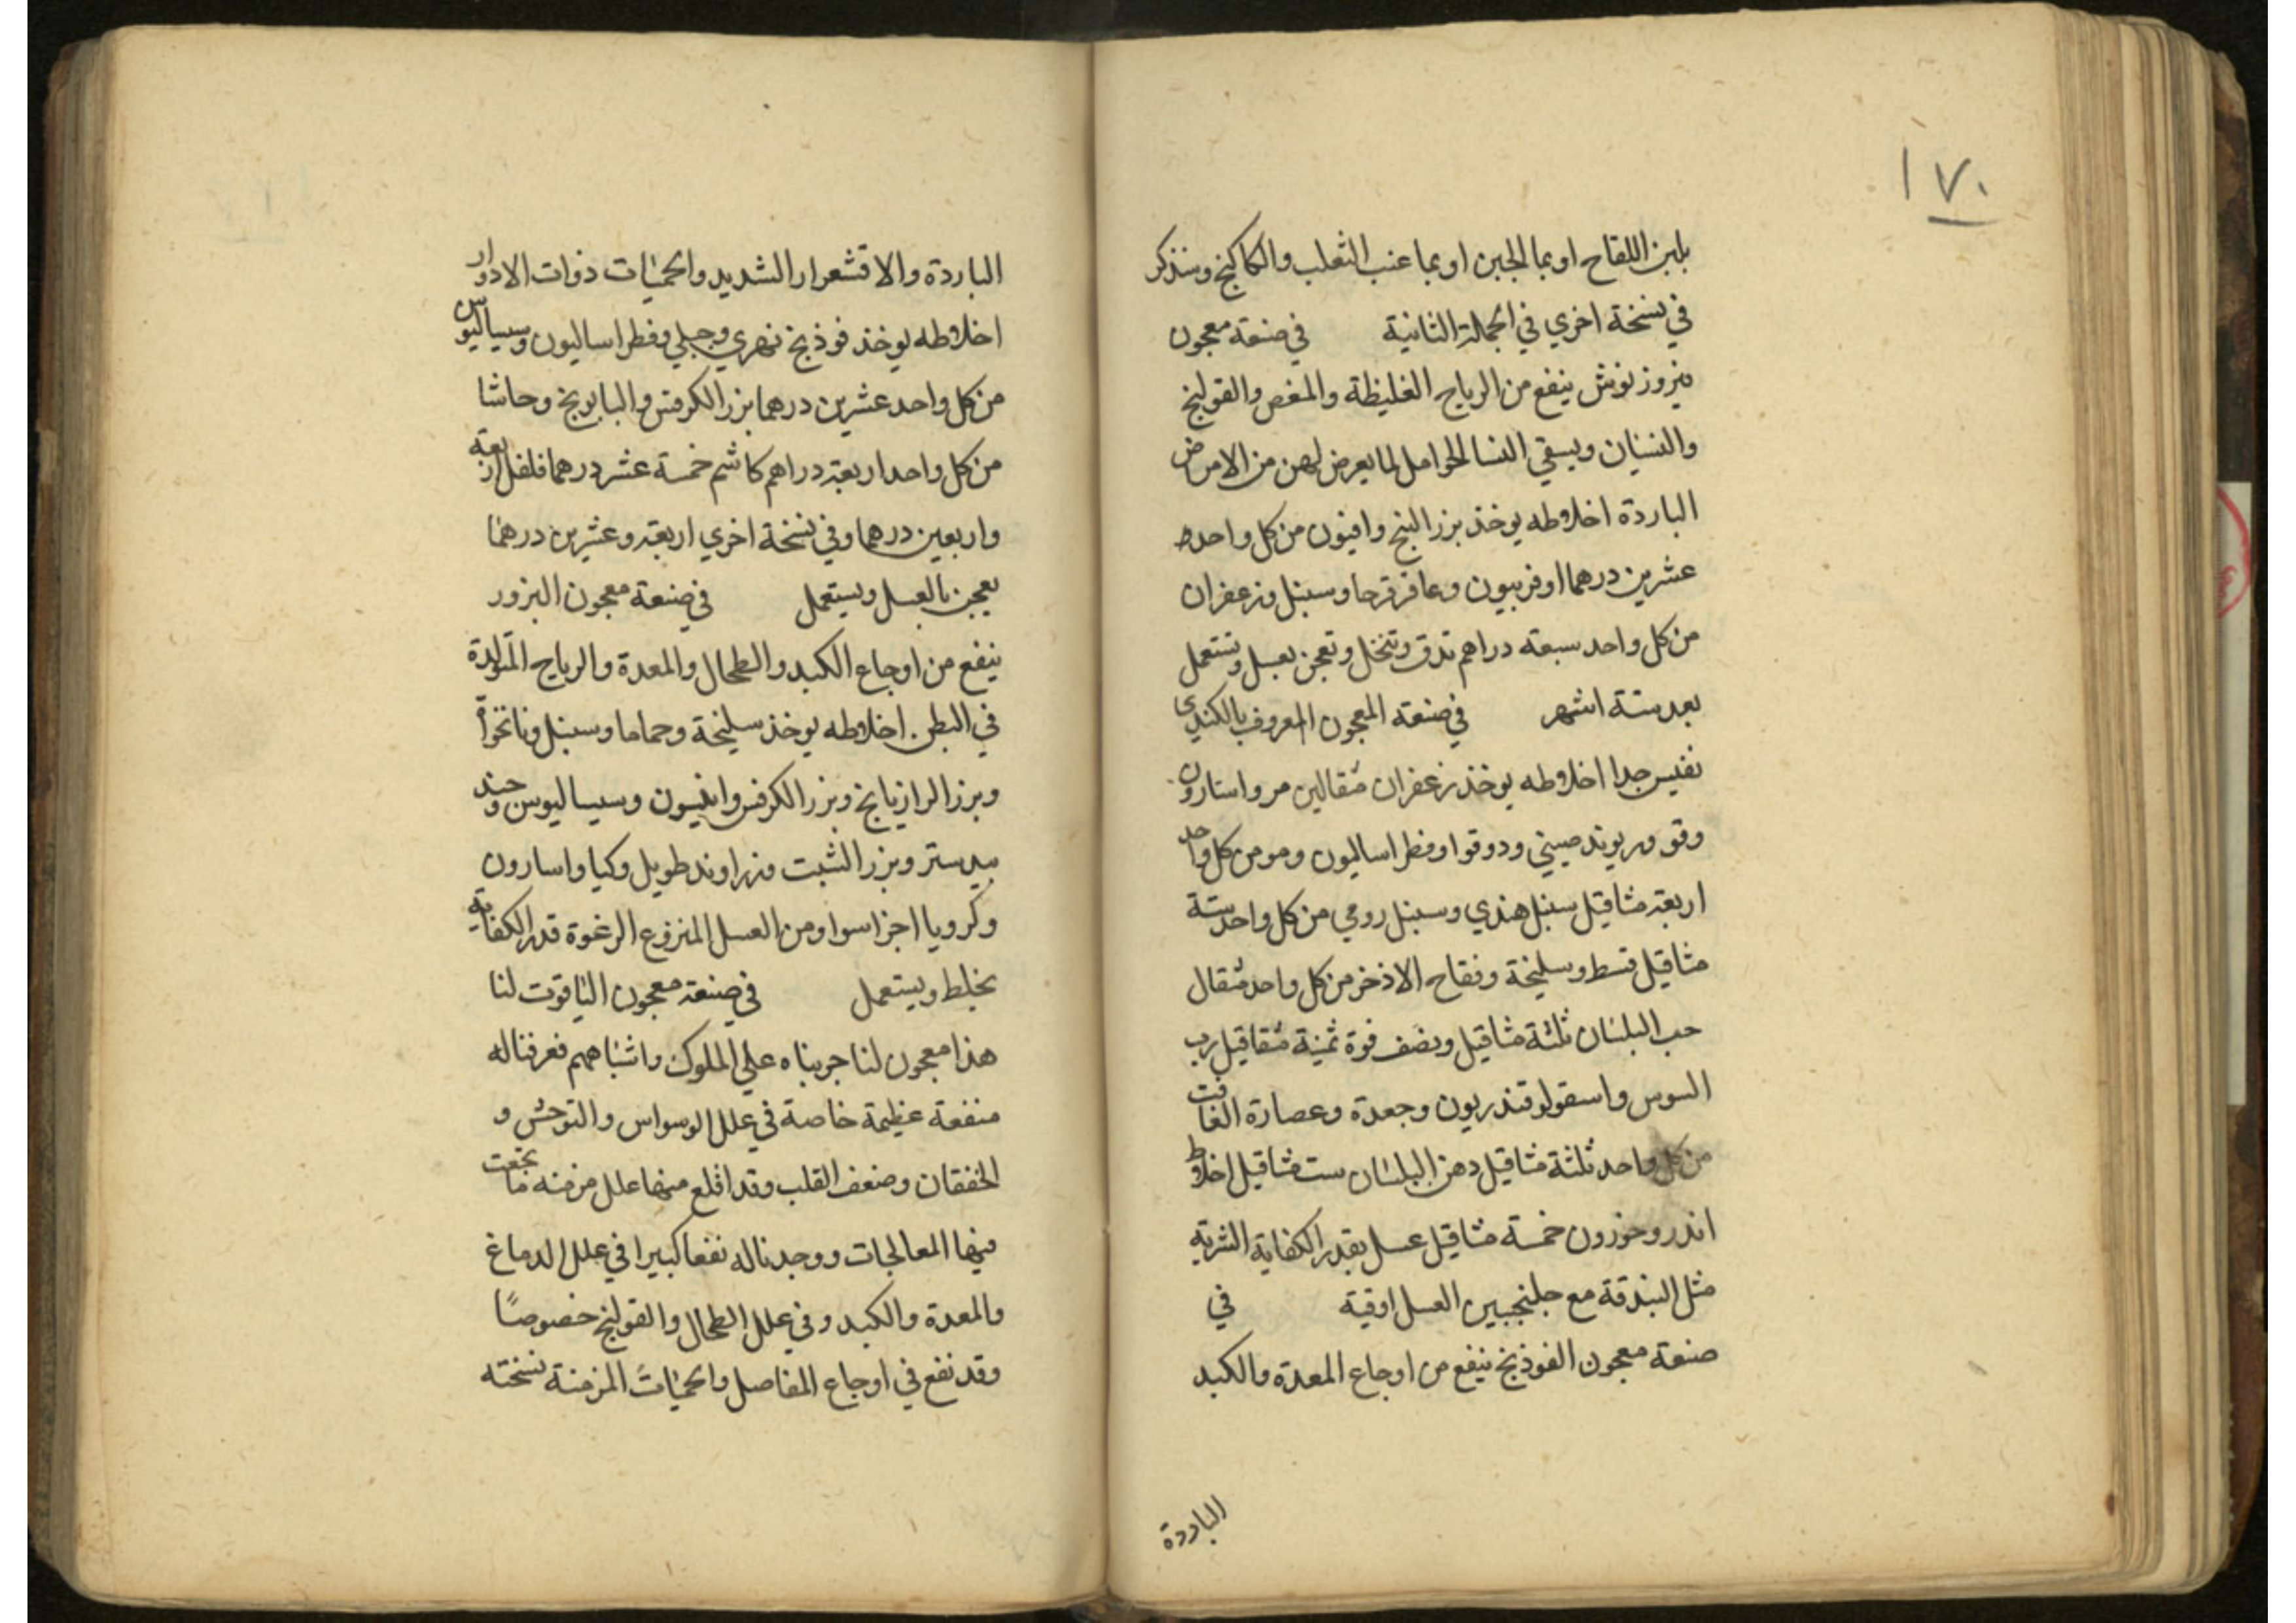 ١٧٠
بلبن اللقاح او بما الجبن او بما عنب الثعلب والكاكنج وسنذكر
في نسخة اخري في الجملة الثانية في صنعة معجون
فيروزنوش ينفع من الرياح الغليظة والمغص والقولنج
والنسيان ويسقي النسا الحوامل لما يعرض لهن من الامراض
الباردة اخلاطه يوخذ بزر البنج وافيون من كل واحد
عشرين درهما اوفربيون وعاقرقرحا وسنبل وزعفران
من كل واحد سبعة دراهم تدق وتنخل وتعجن بعسل وتستعمل
بعد ستة اشهر في صنعة المعجون المعروف بالكندي
نفيس جدا اخلاطه يوخذ زعفران مثقالين مر واسارون
وفو وريوند صيني ودوقوا وفطراساليون ومو من كل واحد
اربعة مثاقيل سنبل هندي وسنبل رومي من كل واحد ستة
مثاقيل قسط وسليخة وفقاح الاذخر من كل واحد مثقال
حب البلسان ثلثة مثاقيل ونصف فوة ثمنية مثقاقيل رب
السوس واسقولوقندريون وجعدة وعصارة الغافت
من كل واحد ثلثة مثاقيل دهن البلسان ست مثاقيل اخلاط
اندروخورون خمسة مثاقيل عسل بقدر الكفاية الشربة
مثل البندقة مع جلنجبين العسل اوقية في
صنعة معجون الفوذنج ينفع من اوجاع المعدة والكبد
الباردة
الباردة والاقشعرار الشديد والحميات ذوات الادوار
اخلاطه يوخذ فوذنج نهري وجبلي وفطراساليون وسيساليوس
من كل واحد عشرين درهما بزر الكرفس والبابونج وحاشا
من كل واحد اربعة دراهم كاشم خمسة عشر درهما فلفل اربعة
واربعين درهما وفي نسخة اخري اربعة وعشرين درهما
يعجن بالعسل ويستعمل في صنعة معجون البزور
ينفع من اوجاع الكبد والطحال والمعدة والرياح المتولدة
في البطن. اخلاطه يوخذ سليخة وحماما وسنبل ونانخواة
وبرز الرازيانج وبزر الكرفس وانيسون وسيساليوس وجند
بيدستر وبزر الشبت وزراوند طويل وكيا واسارون
وكرويا اجزا سوا ومن العسل المنزوع الرغوة قدر الكفاية
يخلط ويستعمل في صنعة معجون الياقوت لنا
هذا معجون لنا جربناه علي الملوك واشباههم فعرفنا له
منفعة عظيمة خاصة في علل الوسواس والتوحش و
الخفقان وضعف القلب وقد اقلع منها علل مزمنه ما نجعت
فيها المعالجات ووجدنا له نفعا كبيرا في علل الدماغ
والمعدة والكبد وفي علل الطحال والقولنج خصوصًا
وقد نفع في اوجاع المفاصل والحميات المزمنة نسخته